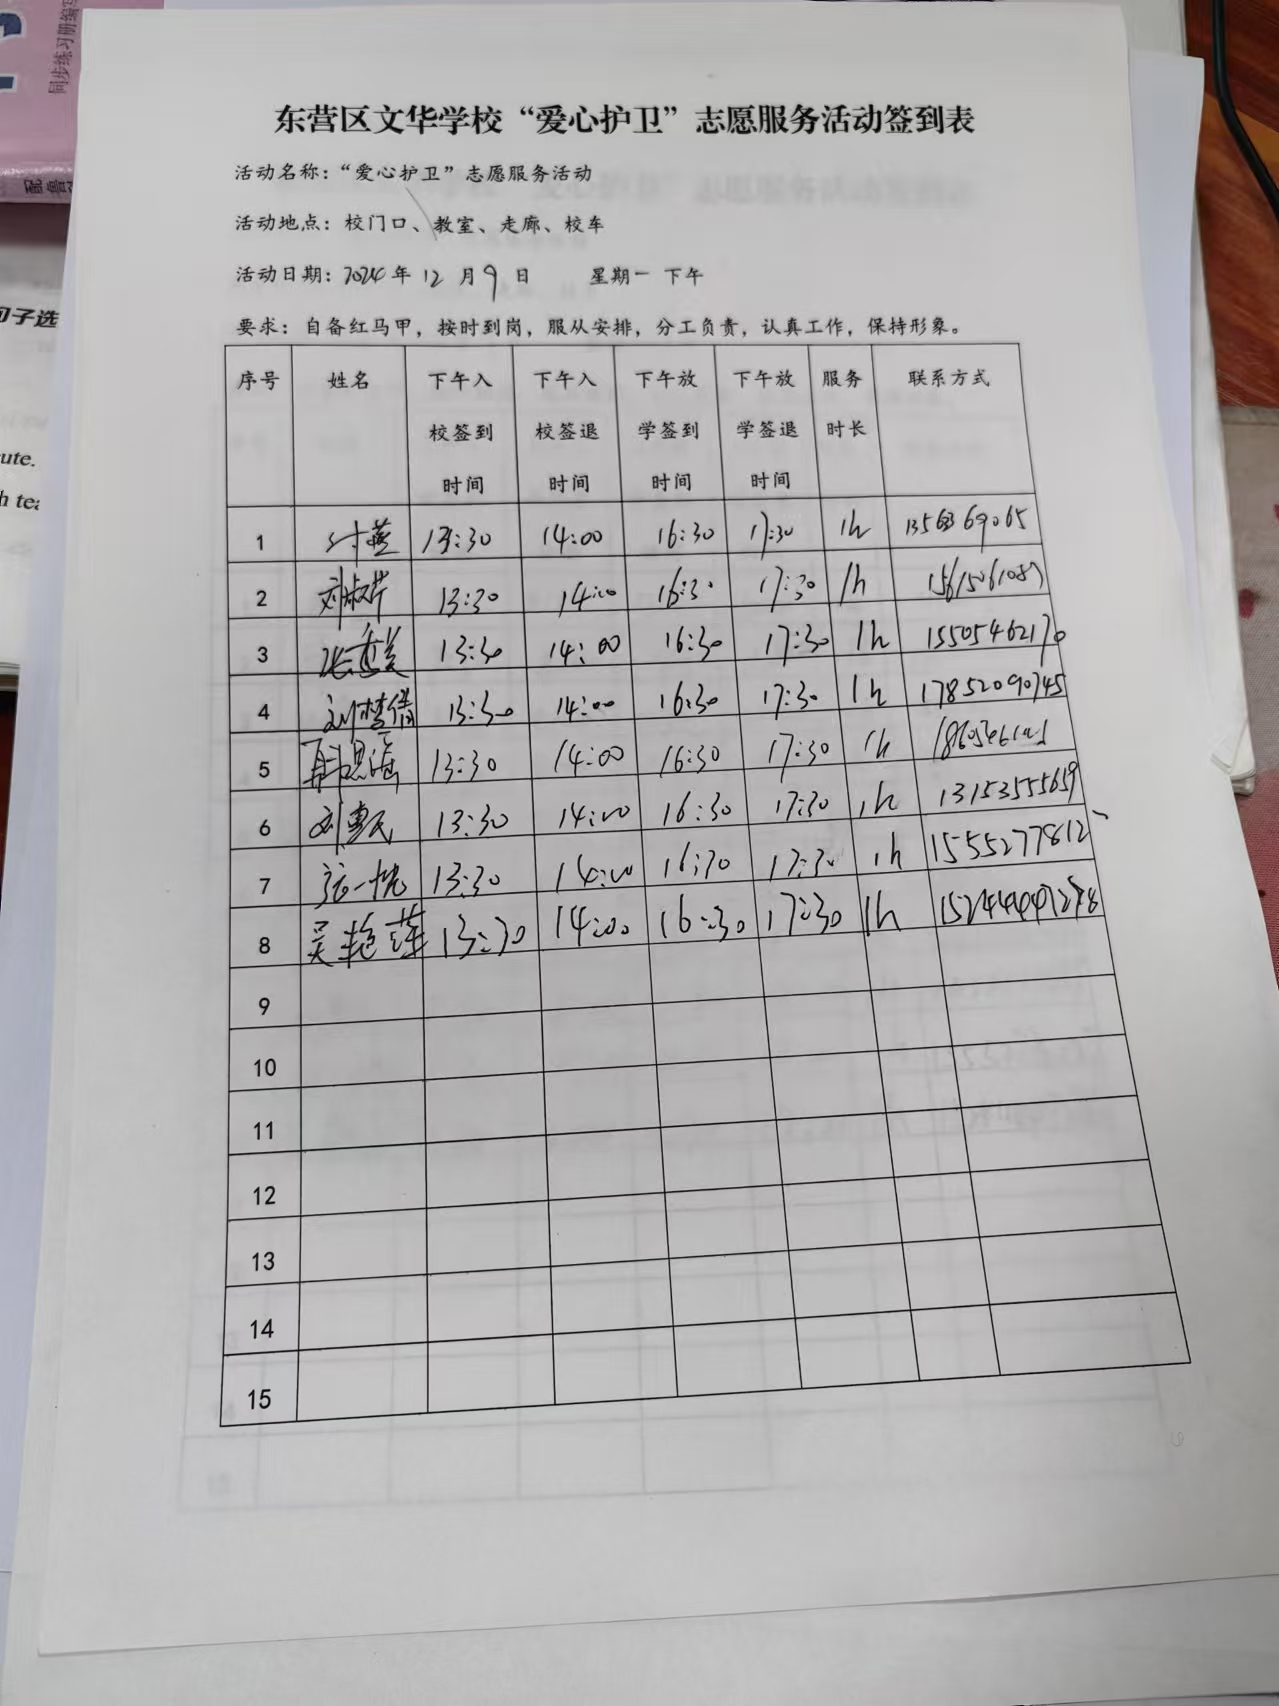 同步练习册编写
配鲁
句子选
ute.
h tea
东营区文华学校“爱心护卫”志愿服务活动签到表
活动名称：“爱心护卫”志愿服务活动
活动地点：校门口、教室、走廊、校车
活动日期：2024年 12 月 9 日 星期一 下午
要求：自备红马甲，按时到岗，服从安排，分工负责，认真工作，保持形象。
序号 姓名 下午入校签到时间 下午入校签退时间 下午放学签到时间 下午放学签退时间 服务时长 联系方式
1 13:30 14:00 16:30 17:30 1h
2 刘淑芹 13:30 14:00 16:30 17:30 1h
3 13:30 14:00 16:30 17:30 1h 15505462170
4 刘梦倩 13:30 14:00 16:30 17:30 1h 17852090745
5 13:30 14:00 16:30 17:30 1h
6 刘惠民 13:30 14:00 16:30 17:30 1h 13153555659
7 张一帆 13:30 14:00 16:30 17:30 1h 1555277812
8 吴艳莲 13:30 14:00 16:30 17:30 1h
9
10
11
12
13
14
15